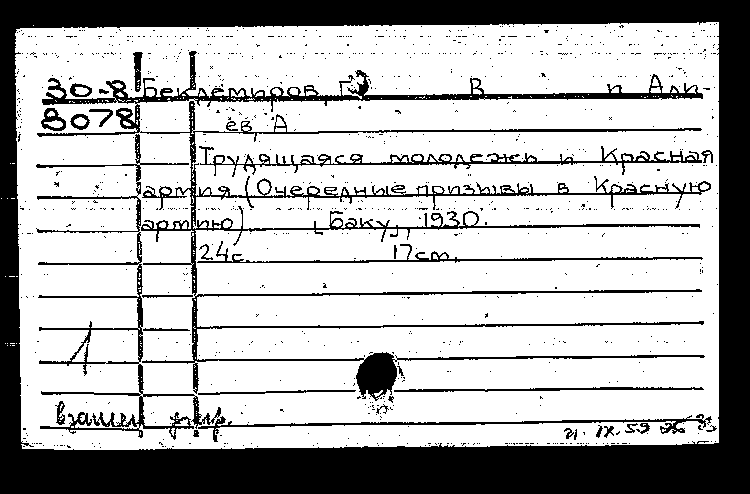 30-8 Бекдемиров, Г. В и Али-
8078 ев, А
Трудящаяся молодежь и Красная
армия (Очередные призывы в Красную
армию) [Баку], 1930.
24с. 17cm.
1
взамен утер.
21. IX. 59